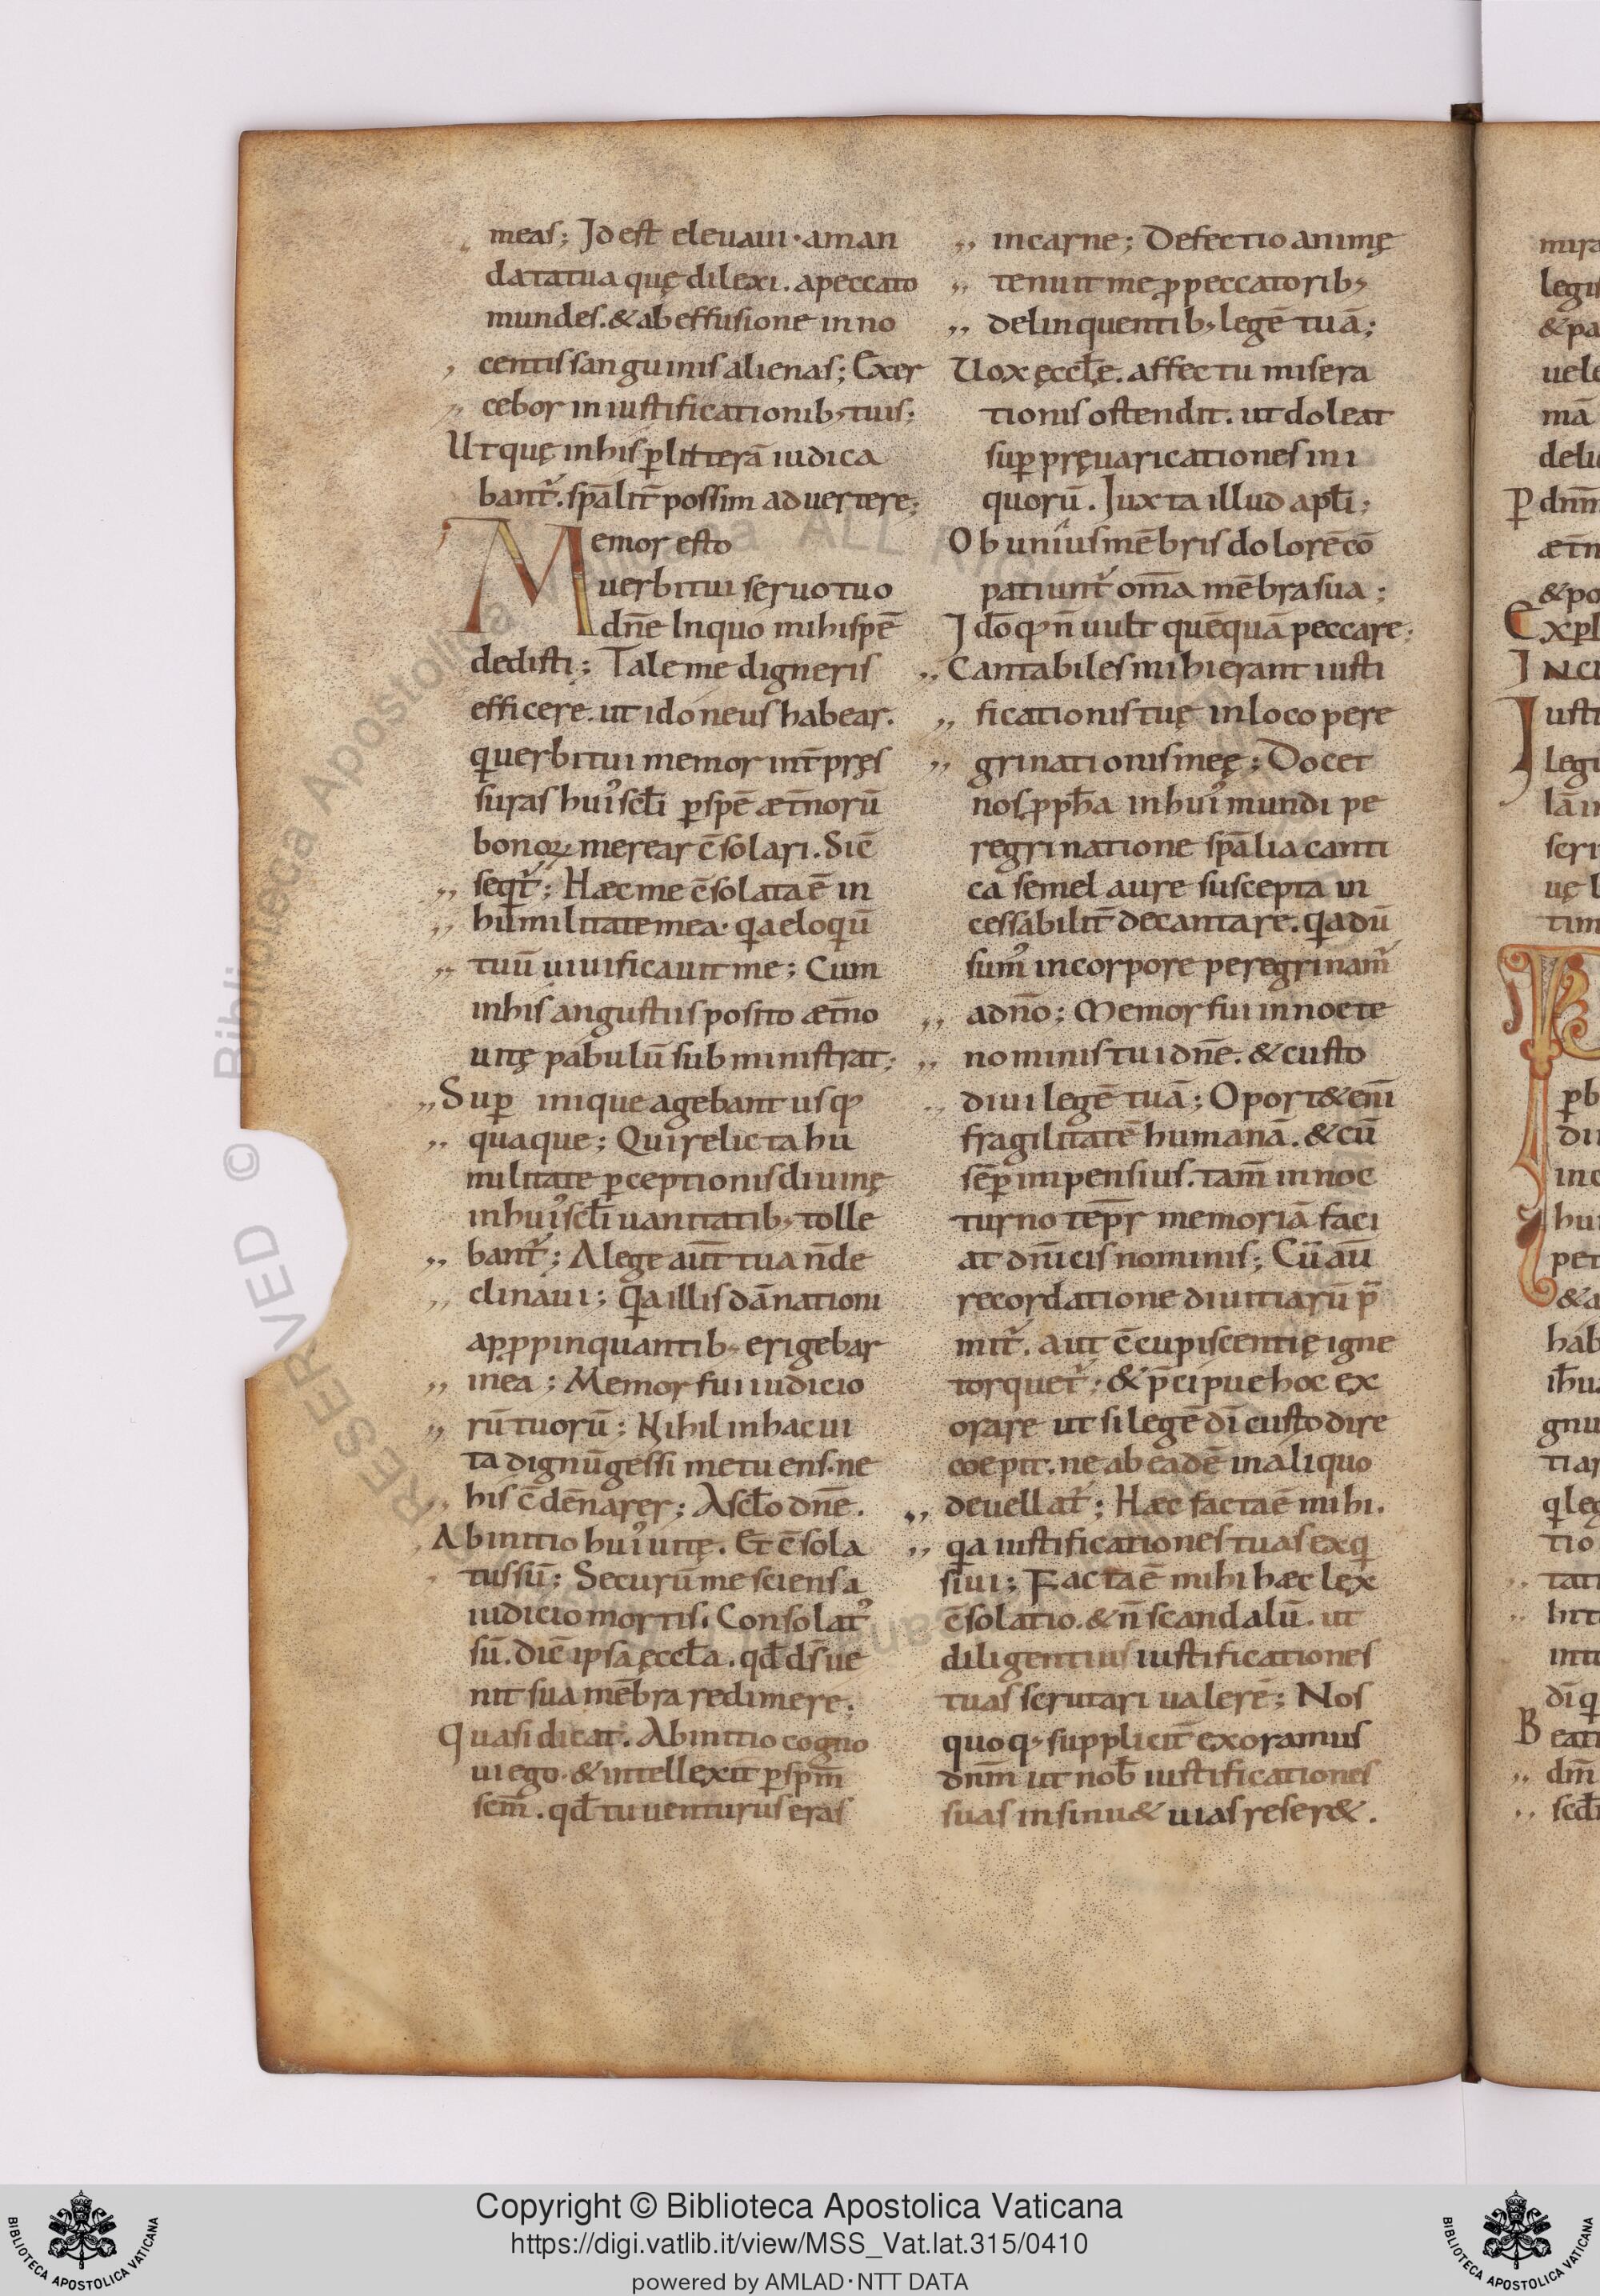 meas; Id est eleuaui · aman
data tua quę dilexi. a peccato
mundes. & ab effusione inno
centis sanguinis alienas; Exer
cebor in iustificationib; tuis;
Ut quę in his plitterā iudica
bant᷒. spālit̄ possim aduertere;
Memor esto
uerbi tui seruo tuo
dn̄e In quo mihi spē
dedisti; Tale me digneris
efficere. ut idóneus habear.
q uerbi tui memor int̄ pręs
suras hui᷒ scl̄i p̱ spē æt̄norū
bonoꝝ merear c̄solari. Sic̄
seqt᷒; Hæc me c̄solata ē in
humilitate mea · qa eloqū
tuū uiuificauit me; Cum
in his angustiis posito æt̄no
uitę pabulū subministrat;
„ Sup̱ inique agebant usq
„ quaque; Qui relicta hu
militate p̱ceptionis diuinę
in hui᷒ scl̄i uanitatib; tolle
„ bant᷒; A lege aut̄ tua n̄ de
„ clinaui; Qa illis dānationi
appropinquantib; erigebar
„ in ea; Memor fui iudicio
„ rū tuorū; Nihil in hac ui
ta dignū gessi metuens · ne
„ his c̄dēnarer; A scl̄o dn̄e.
Ab initio hui᷒ uitę. Et c̄sola
tus sū; Securū me sciens a
iudicio mortis. Consolat᷒
sū. dic̄ ipsa ęccl̄a. qd̄ ds̄ ue
nit sua mēbra redimere;
Quasi dicat. Ab initio cogno
ui ego · & intellexit p̱ sp̄m
sc̄m. qd̄ tu uenturus eras
„ in carne; Defectio animę
„ tenuit me ꝓ peccatorib;
„ delinquentib; legē tuā;
Uox ęccl̄ę. affectu misera
tionis ostendit. ut doleat
sup̱ pręuaricationes ini
quorū. Iuxta illud apl̄i;
Ob unius mēbris dolorē cō
patiunt᷒ om̄a mēbra sua;
Idōq n̄ uult quēquā peccare;
„ Cantabiles mihi erant iusti
„ ficationis tuę in loco pere
„ grinationis meę; Docet
nos ꝓph̄a in hui᷒ mundi pe
regrinatione spālia canti
ca semel aure suscepta in
cessabilit̄ decantare. qa dū
sum᷒ in corpore peregrinam᷒
„ a dn̄o; Memor fui in nocte
„ nominis tui dn̄e. & custo
„ diui legē tuā; Oport& eni̅
fragilitatē humanā. & cū
sēp̱ impensius. tam̄ in noc
turno tēpr̄ memoriā faci
at dn̄icis nominis; Cū aū
recordatione diuitiarū p̄
mit᷒. aut c̄cupiscentię igne
torquet᷒; & p̄cipue hoc ex
orare ut si legē dī custodire
coepit. ne ab eadē in aliquo
„ deuellat᷒; Hæc facta ē mihi.
„ qa iustificationes tuas exq
siui; Facta ē mihi hæc lex
c̄solatio. & n̄ scandalū. ut
diligentius iustificationes
tuas scrutari ualerē; Nos
quoq; supplicit̄ exoramus
dn̄m ut nob̄ iustificationes
suas insinu& uias reser&.
Copyright © Biblioteca Apostolica Vaticana
https://digi.vatlib.it/view/MSS_Vat.lat.315/0410
powered by AMLAD · NTT DATA
BIBLIOTECA APOSTOLICA VATICANA
BIBLIOTECA APOSTOLICA VATICANA